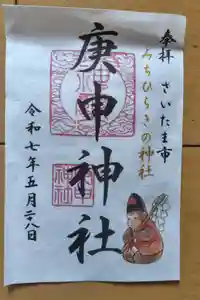 奉拝 さいたま市
みちひらきの神社
庚申神社
令和七年五月二八日